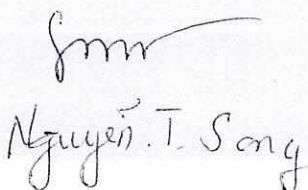 Nguyễn. T. Song